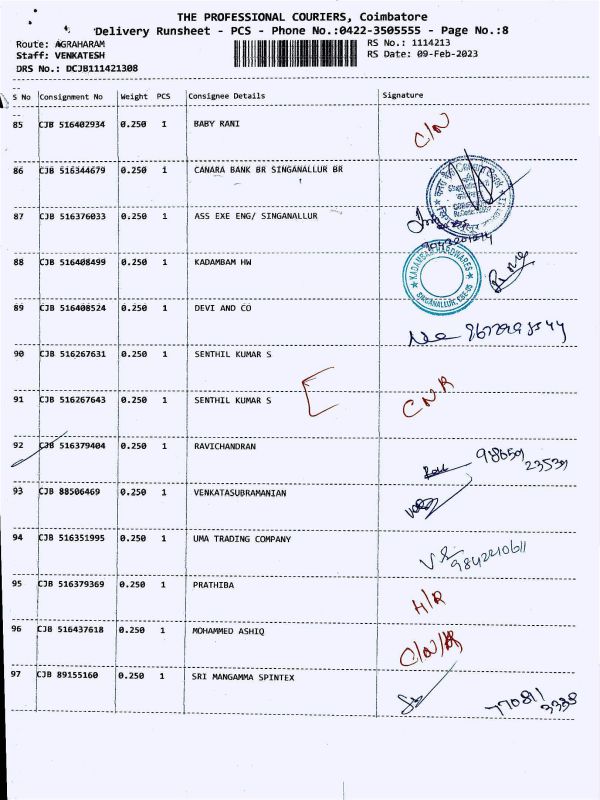 THE PROFESSIONAL COURIERS, Coimbatore
Delivery Runsheet - PCS - Phone No.:0422-3505555 - Page No.:8
Route: AGRAHARAM
RS No.: 1114213
Staff: VENKATESH
RS Date: 09-Feb-2023
DRS No.: DCJB111421308
S No Consignment No Weight PCS Consignee Details Signature
85 CJB 516402934 0.250 1 BABY RANI C/N
86 CJB 516344679 0.250 1 CANARA BANK BR SINGANALLUR BR
87 CJB 516376033 0.250 1 ASS EXE ENG/ SINGANALLUR
88 CJB 516408499 0.250 1 KADAMBAM HW
KADAMBAM HARDWARES
SINGANALLUR, CBE-05
89 CJB 516408524 0.250 1 DEVI AND CO
90 CJB 516267631 0.250 1 SENTHIL KUMAR S
91 CJB 516267643 0.250 1 SENTHIL KUMAR S CNR
92 CJB 516379404 0.250 1 RAVICHANDRAN
93 CJB 88506469 0.250 1 VENKATASUBRAMANIAN
94 CJB 516351995 0.250 1 UMA TRADING COMPANY
9842210611
95 CJB 516379369 0.250 1 PRATHIBA H/R
96 CJB 516437618 0.250 1 MOHAMMED ASHIQ
97 CJB 89155160 0.250 1 SRI MANGAMMA SPINTEX
770811
3338